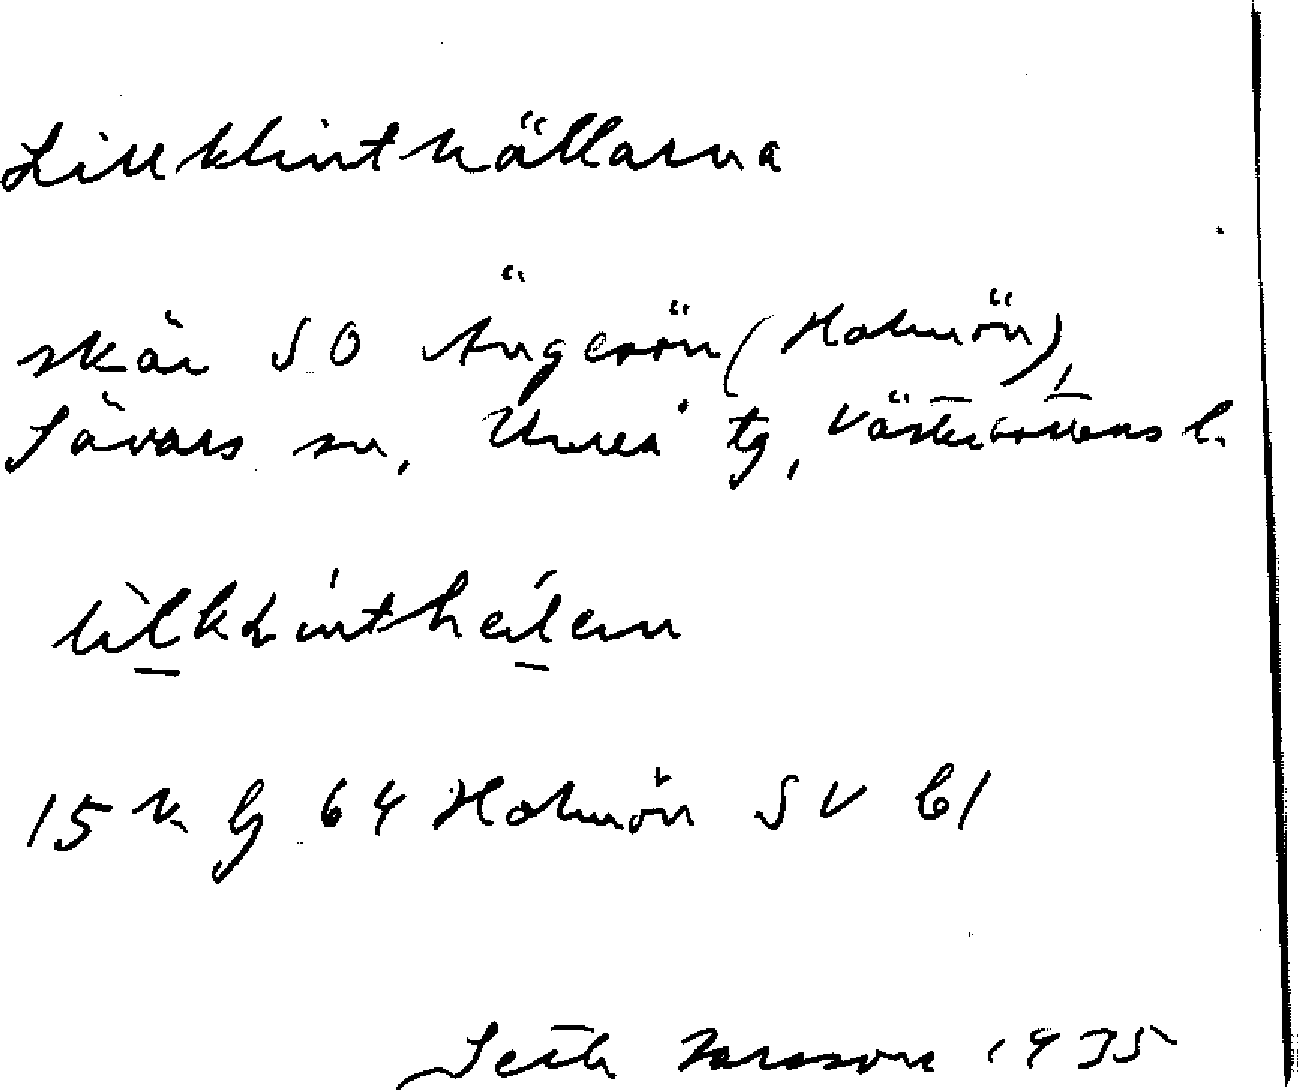 Lillklinthällarna
skär SO Ängesön (Holmön),
Sävars sn, Umeå tg, Västerbottens l.
lìlklínthélean
15 k g 64 Holmön SV bl
Seth Larsson 1935